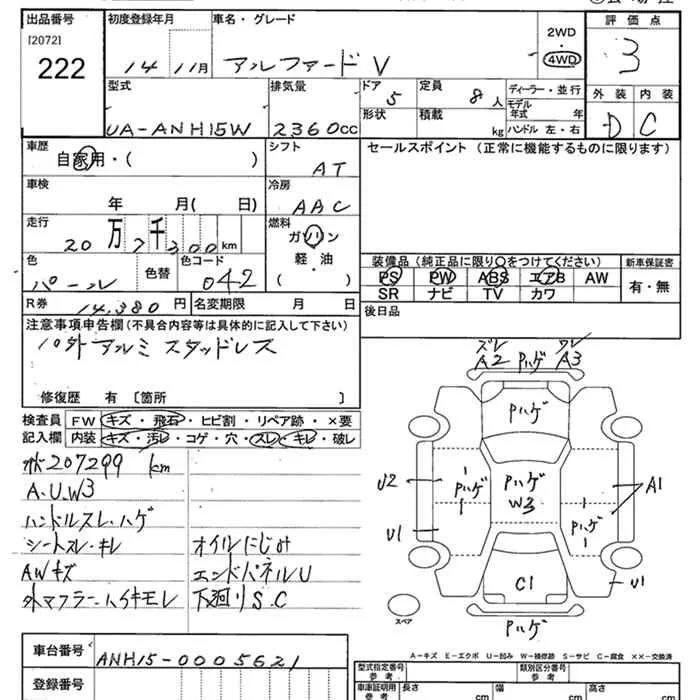 出品番号 初度登録年月 車名・グレード 2WD・4WD 評価点
[2072] 222 14 11月 アルファード V 3
型式 排気量 ドア 5 定員 8人 ディーラー・並行 外装 内装
形状 積載 kg モデル年式 年 ハンドル 左・右
UA-ANH15W 2360cc D C
車歴 自家用・( ) シフト AT セールスポイント (正常に機能するものに限ります)
車検 年 月( 日) 冷房 AAC
走行 20万7千300km 燃料 ガソリン 軽・油 ( )
色 パール 色替 色コード 042
装備品 (純正品に限り〇をつけてください) 新車保証書
PS PW ABS エアB AW 有・無
SR ナビ TV カワ
R券 14,380円 名変期限 月 日 後日品
注意事項申告欄 (不具合内容等は具体的に記入して下さい)
社外アルミ スタッドレス
修復歴 有 〔箇所 〕
検査員 FW キズ・飛石・ヒビ割・リペア跡・×要
記入欄 内装 キズ・汚レ・コゲ・穴・スレ・キレ・破レ
207299 km
A.U.W3
ハンドルスレ・ハゲ
シートスレ・キレ オイルにじみ
AWキズ エンドパネルU
外マフラー・ハイキモレ 下廻りS.C
ズレ ワレ
A2 Pハゲ A3
Pハゲ
U2 Pハゲ Pハゲ W3 Pハゲ A1
U1 C1 U1
スペア
Pハゲ
A-キズ E-エクボ U-凹み W-補修跡 S-サビ C-腐食 ××-交換済
車台番号 ANH15-0005621
登録番号
型式指定番号 参考 類別区分番号 参考
車庫証明用 参考 長さ cm 幅 cm 高さ cm